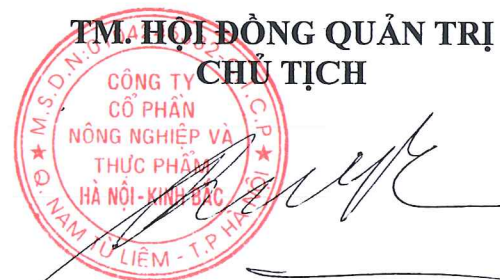 TM. HỘI ĐỒNG QUẢN TRỊ
CHỦ TỊCH
CÔNG TY
CỔ PHẦN
NÔNG NGHIỆP VÀ
THỰC PHẨM
HÀ NỘI - KINH BẮC
Q. NAM TỪ LIÊM - T.P HÀ NỘI